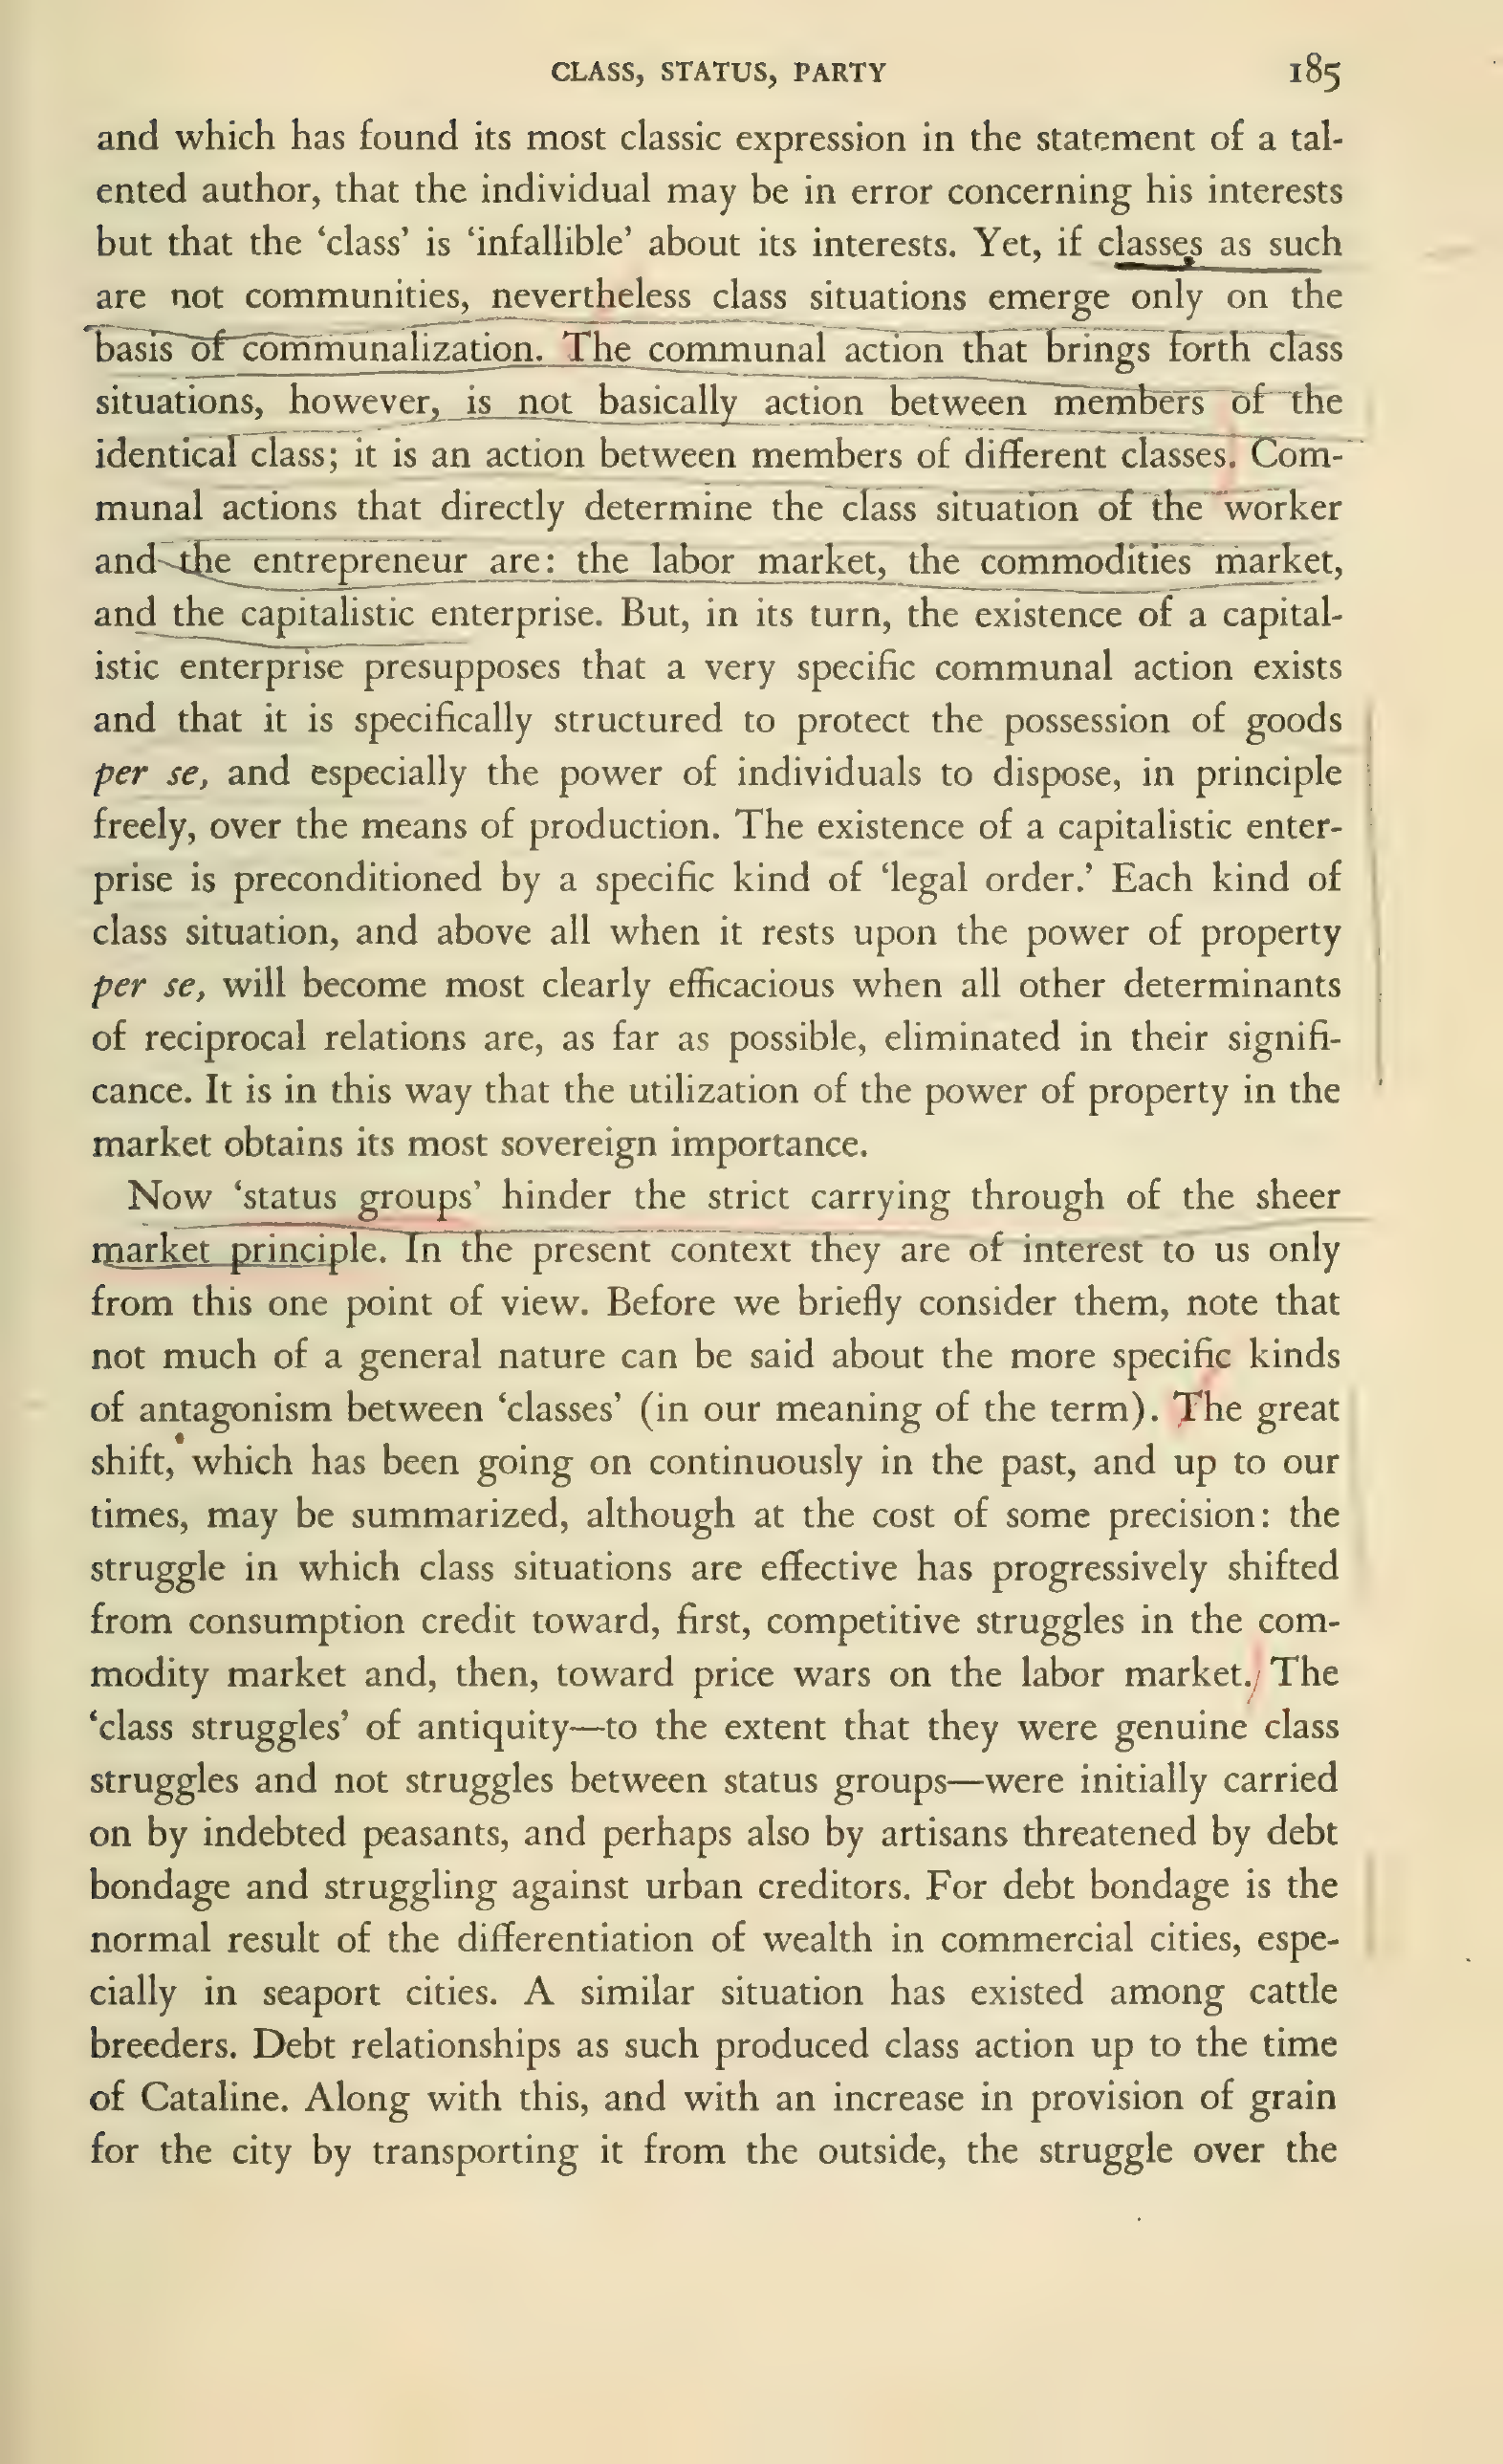 CLASS, STATUS, PARTY 185
and which has found its most classic expression in the statement of a tal-
ented author, that the individual may be in error concerning his interests
but that the ‘class’ is ‘infallible’ about its interests. Yet, if classes as such
are not communities, nevertheless class situations emerge only on the
basis of communalization. The communal action that brings forth class
situations, however, is not basically action between members of the
identical class; it is an action between members of different classes. Com-
munal actions that directly determine the class situation of the worker
and the entrepreneur are: the labor market, the commodities market,
and the capitalistic enterprise. But, in its turn, the existence of a capital-
istic enterprise presupposes that a very specific communal action exists
and that it is specifically structured to protect the possession of goods
per se, and especially the power of individuals to dispose, in principle
freely, over the means of production. The existence of a capitalistic enter-
prise is preconditioned by a specific kind of ‘legal order.’ Each kind of
class situation, and above all when it rests upon the power of property
per se, will become most clearly efficacious when all other determinants
of reciprocal relations are, as far as possible, eliminated in their signifi-
cance. It is in this way that the utilization of the power of property in the
market obtains its most sovereign importance.
Now ‘status groups’ hinder the strict carrying through of the sheer
market principle. In the present context they are of interest to us only
from this one point of view. Before we briefly consider them, note that
not much of a general nature can be said about the more specific kinds
of antagonism between ‘classes’ (in our meaning of the term). The great
shift, which has been going on continuously in the past, and up to our
times, may be summarized, although at the cost of some precision: the
struggle in which class situations are effective has progressively shifted
from consumption credit toward, first, competitive struggles in the com-
modity market and, then, toward price wars on the labor market. The
‘class struggles’ of antiquity—to the extent that they were genuine class
struggles and not struggles between status groups—were initially carried
on by indebted peasants, and perhaps also by artisans threatened by debt
bondage and struggling against urban creditors. For debt bondage is the
normal result of the differentiation of wealth in commercial cities, espe-
cially in seaport cities. A similar situation has existed among cattle
breeders. Debt relationships as such produced class action up to the time
of Cataline. Along with this, and with an increase in provision of grain
for the city by transporting it from the outside, the struggle over the